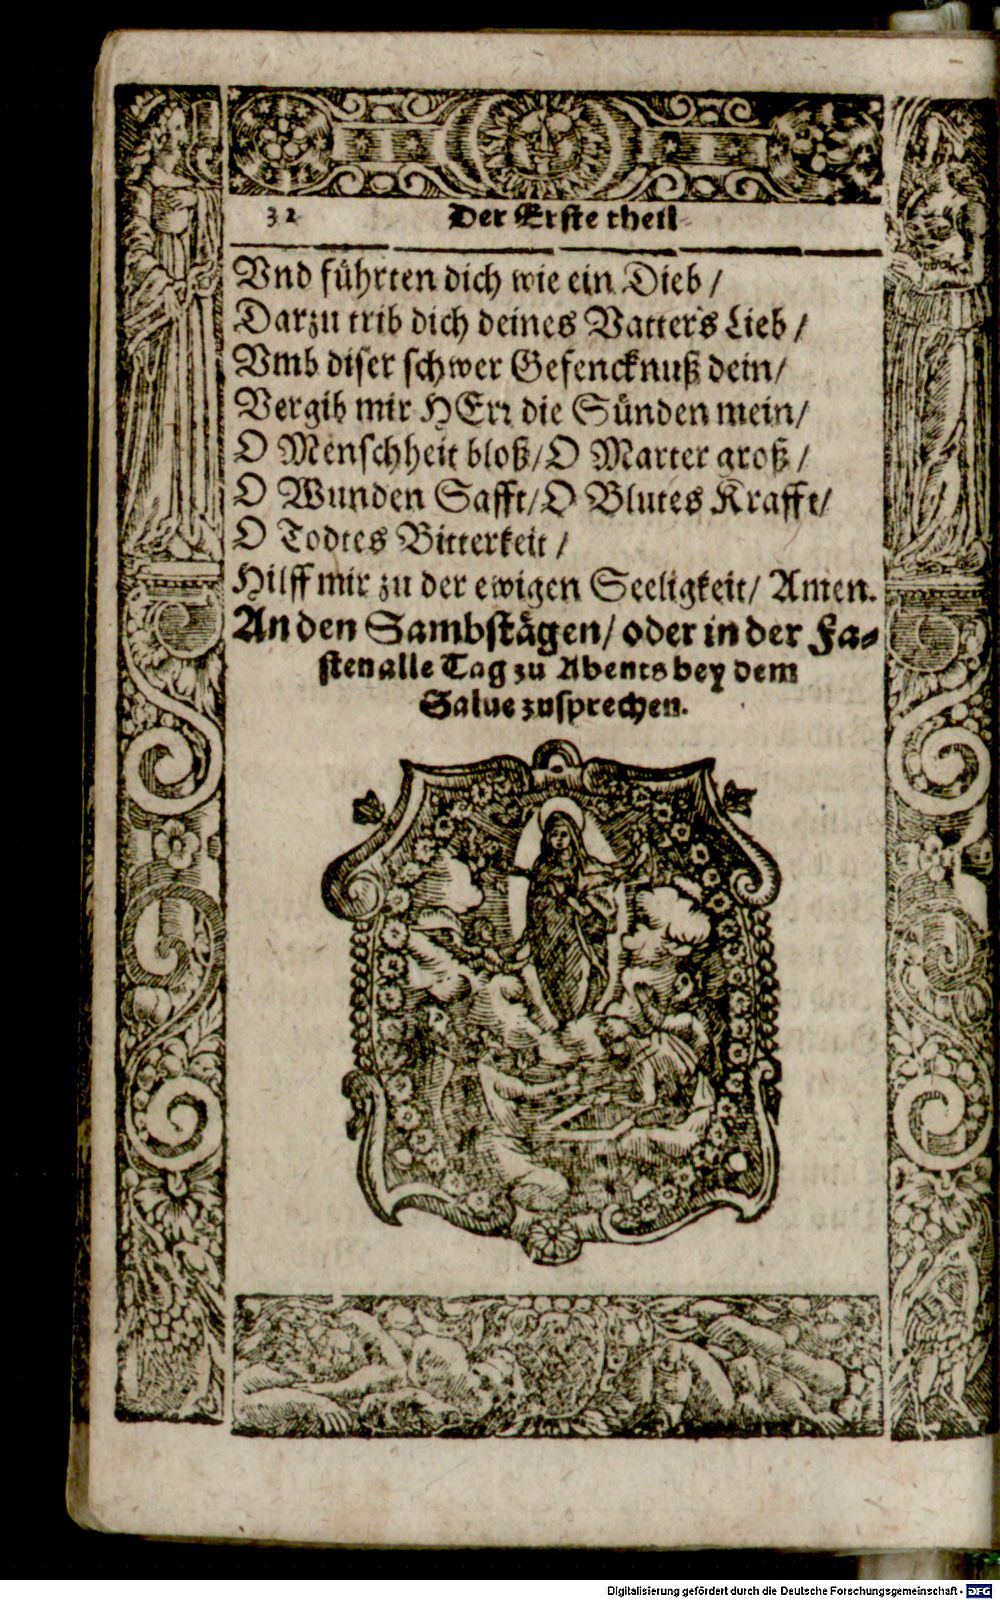 32
Der Erste theil
Vnd führten dich wie ein Dieb /
Darzu trib dich deines Vatters Lieb /
Vmb diser schwer Gefencknuß dein /
Vergib mir HErr die Sünden mein /
O Menschheit bloß / O Marter groß /
O Wunden Safft / O Blutes Krafft /
O Todtes Bitterkeit /
Hilff mir zu der ewigen Seeligkeit / Amen.
An den Sambstägen / oder in der Fa-
sten alle Tag zu Abents bey dem
Salue zusprechen.
Digitalisierung gefördert durch die Deutsche Forschungsgemeinschaft - DFG